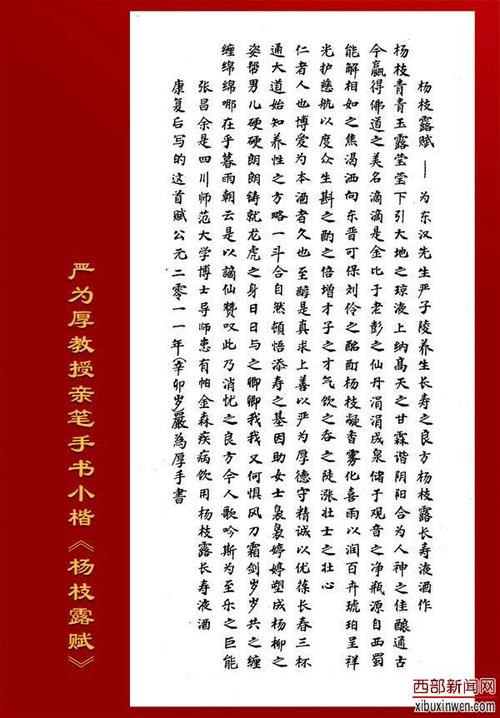 杨枝露赋——为东汉先生严子陵养生长寿之良方杨枝露长寿液酒作
杨枝青青玉露莹莹下引大地之琼液上纳高天之甘霖谐阴阳合为人神之佳酿通古
今赢得佛道之美名滴滴是金比于老彭之仙丹涓涓成泉储于观音之净瓶源自西蜀
能解相如之焦渴洒向东晋可保刘伶之酩酊杨枝凝香雾化喜雨以润百卉琥珀呈祥
光护慈航以度众生斟之酌之倍增才子之才气饮之吞之陡涨壮士之壮心
仁者人也博爱为本酒者久也至醇是真求上善以严为厚德守精诚以优葆长春三杯
通大道始知养性之方略一斗合自然顿悟添寿之基因助女士袅袅婷婷塑成杨柳之
姿帮男儿硬硬朗朗铸就龙虎之身日日与之卿卿我我又何惧风刀霜剑岁岁共之缠
缠绵绵哪在乎暮雨朝云是以谪仙赞叹此乃消忧之良方令人歌吟斯为至乐之巨能
张昌余是四川师范大学博士导师患有帕金森疾病饮用杨枝露长寿液酒
康复后写的这首赋公元二零一一年(辛卯岁)嚴為厚手書
严为厚教授亲笔手书小楷《杨枝露赋》
西部新闻网
xibuxinwen.com